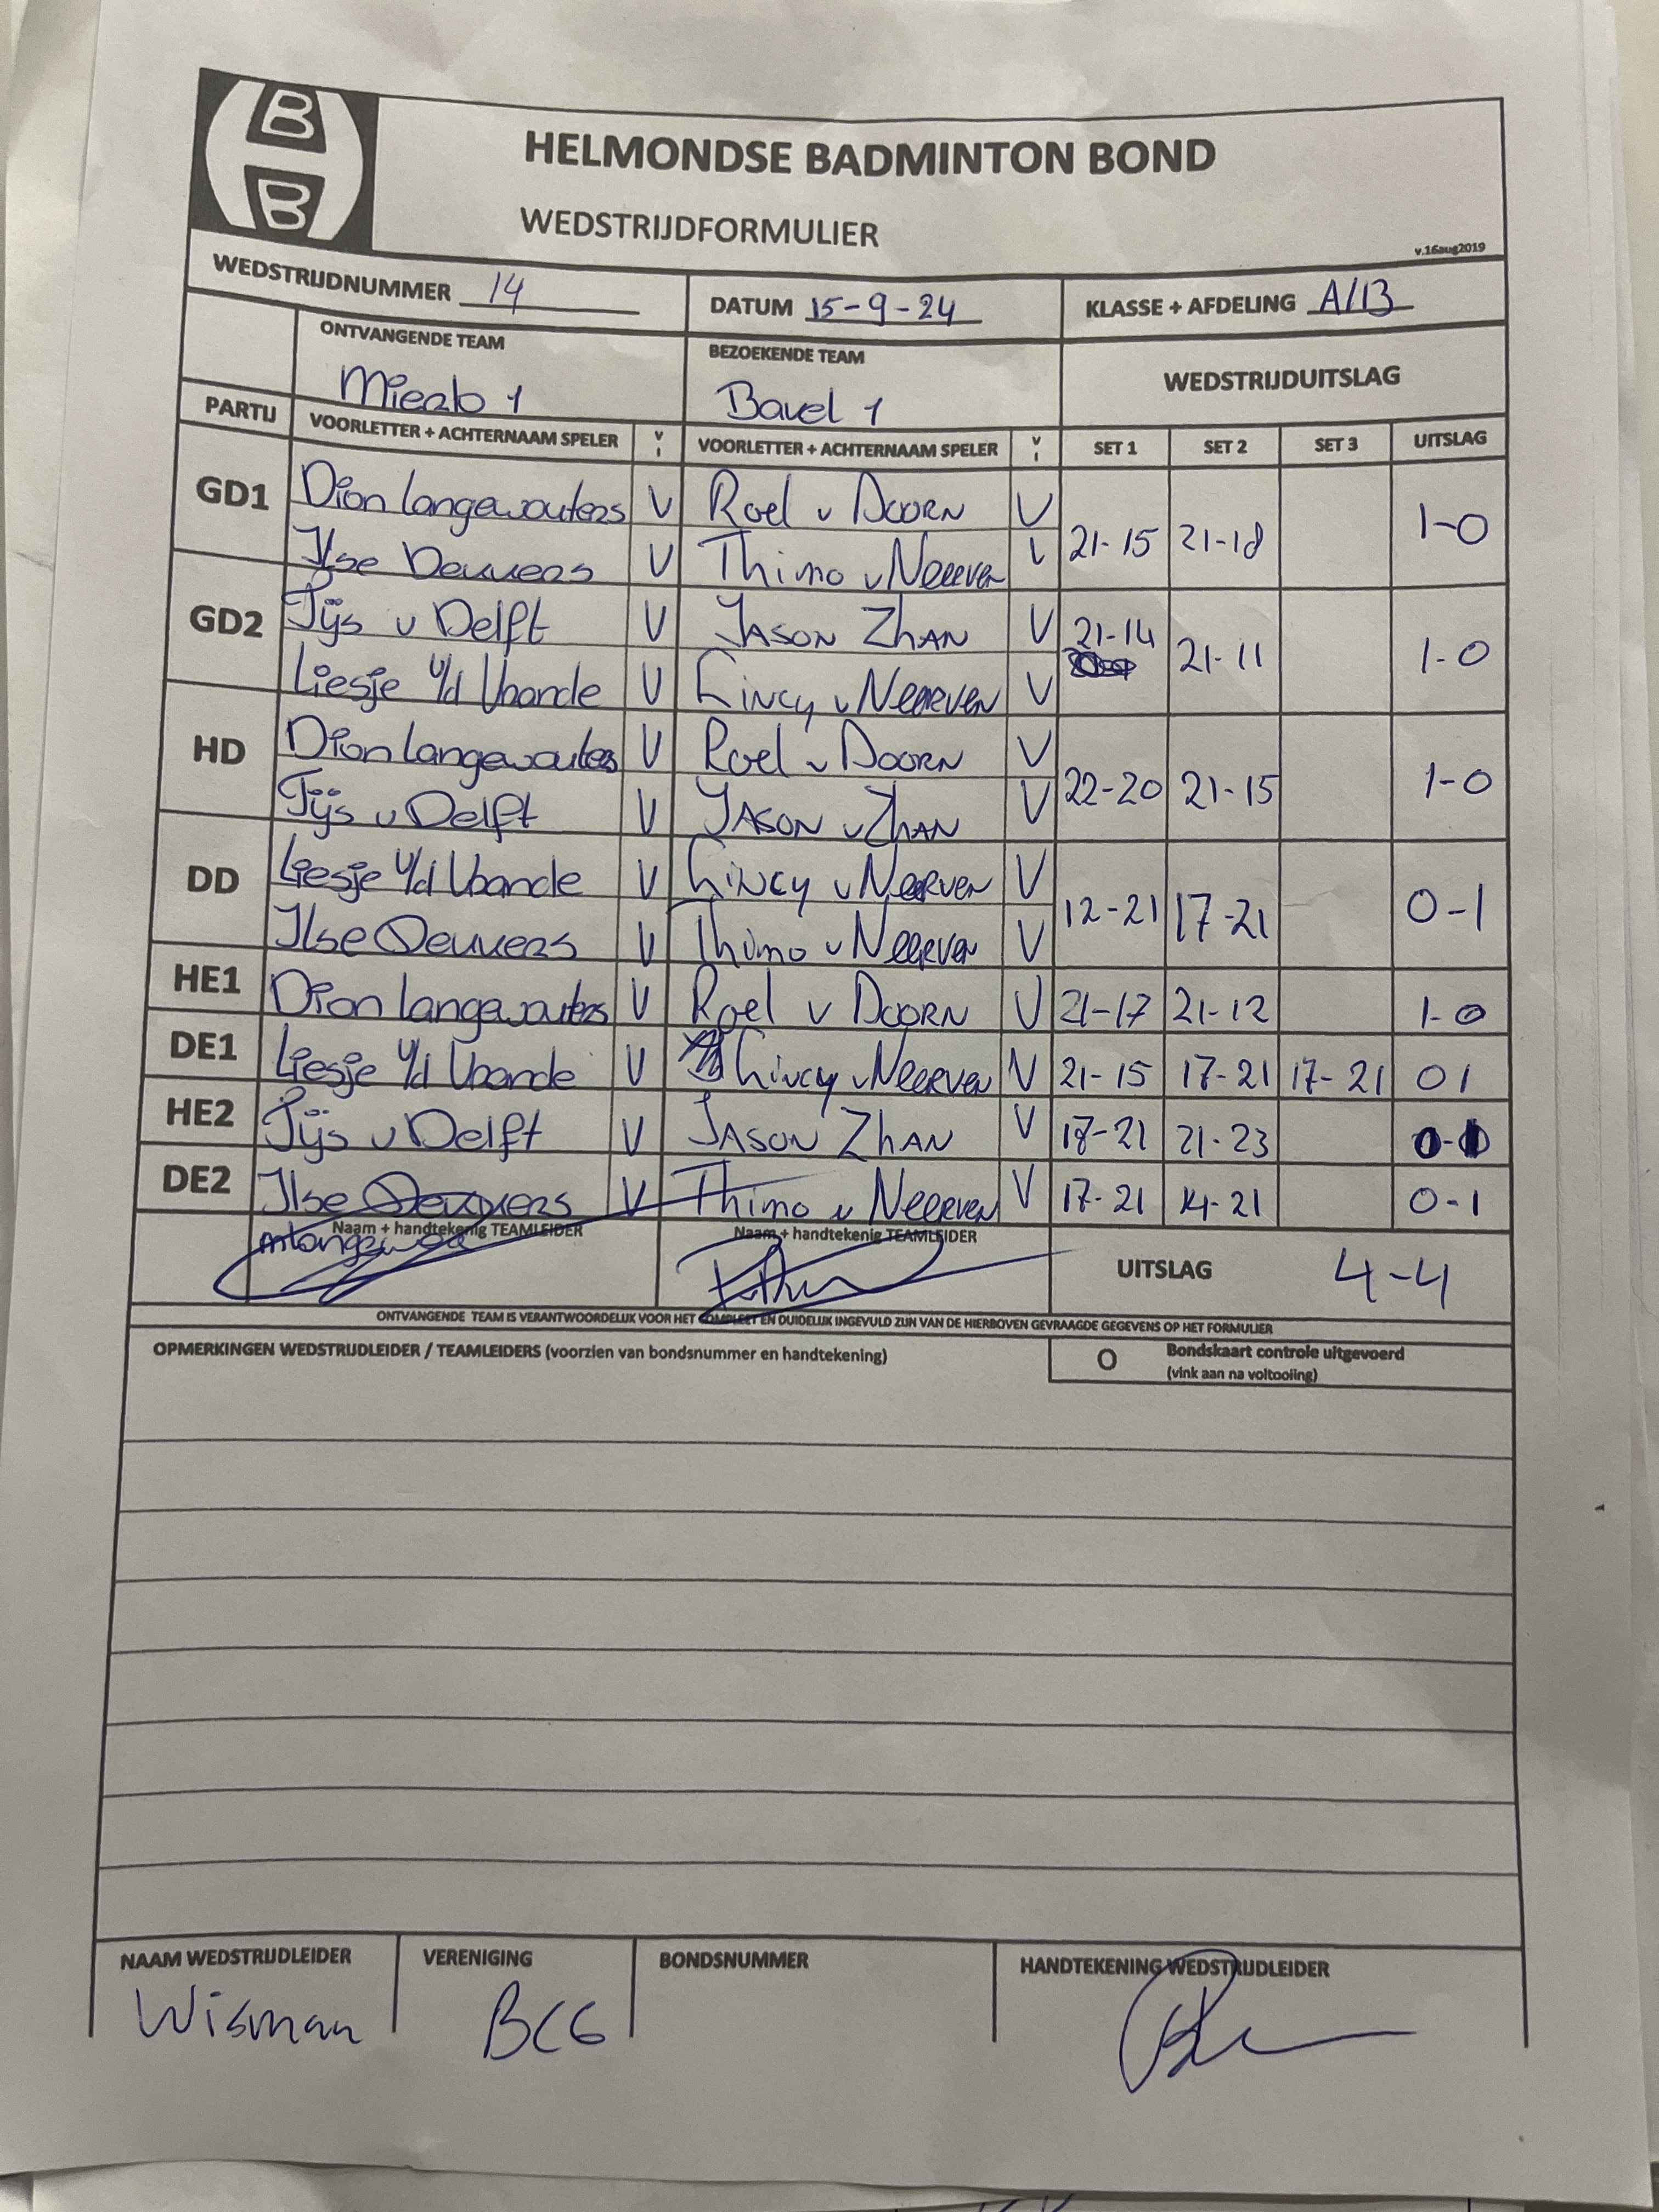 B
B
HELMONDSE BADMINTON BOND
WEDSTRIJDFORMULIER
v.16aug2019
WEDSTRIJDNUMMER 14
DATUM 15-9-24
KLASSE + AFDELING A/B
ONTVANGENDE TEAM
Mierlo 1
BEZOEKENDE TEAM
Bavel 1
WEDSTRIJDUITSLAG
PARTIJ VOORLETTER + ACHTERNAAM SPELER V I VOORLETTER + ACHTERNAAM SPELER V I SET 1 SET 2 SET 3 UITSLAG
GD1 Dion Langewouters V Roel v Doorn V 21-15 21-18 1-0
Ilse Deuvers V Thimo v Neerven
GD2 Tijs v Delft V Jason Zhan V 21-14 21-11 1-0
Liesje v/d Vrande V Lincy v Neerven V
HD Dion Langewouters V Roel v Doorn V 22-20 21-15 1-0
Tijs v Delft V Jason v Zhan V
DD Liesje v/d Vrande V Lincy v Neerven V 12-21 17-21 0-1
Ilse Deuvers V Thimo v Neerven V
HE1 Dion Langewouters V Roel v Doorn V 21-17 21-12 1-0
DE1 Liesje v/d Vrande V Lincy v Neerven V 21-15 17-21 17-21 0 1
HE2 Tijs v Delft V Jason Zhan V 18-21 21-23 0-1
DE2 Ilse Deuvers V Thimo v Neerven V 17-21 14-21 0-1
Naam + handtekenig TEAMLEIDER
Naam + handtekenig TEAMLEIDER
UITSLAG 4-4
ONTVANGENDE TEAM IS VERANTWOORDELIJK VOOR HET COMPLEET EN DUIDELIJK INGEVULD ZIJN VAN DE HIERBOVEN GEVRAAGDE GEGEVENS OP HET FORMULIER
OPMERKINGEN WEDSTRIJDLEIDER / TEAMLEIDERS (voorzien van bondsnummer en handtekening)
O Bondskaart controle uitgevoerd
(vink aan na voltooiing)
NAAM WEDSTRIJDLEIDER
Wisman
VERENIGING
BCG
BONDSNUMMER
HANDTEKENING WEDSTRIJDLEIDER